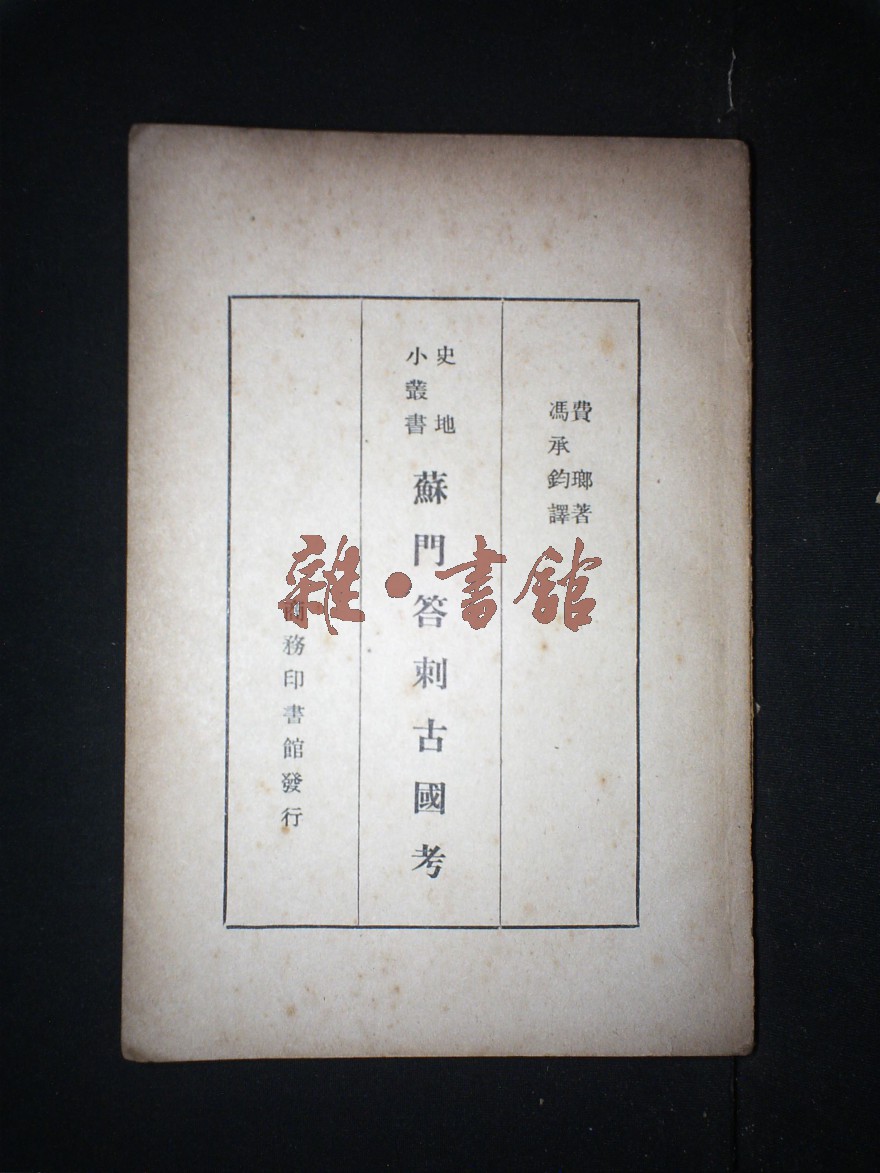 費瑯著
馮承鈞譯
史地
小叢書
蘇門答剌古國考
商務印書館發行
雜·書館